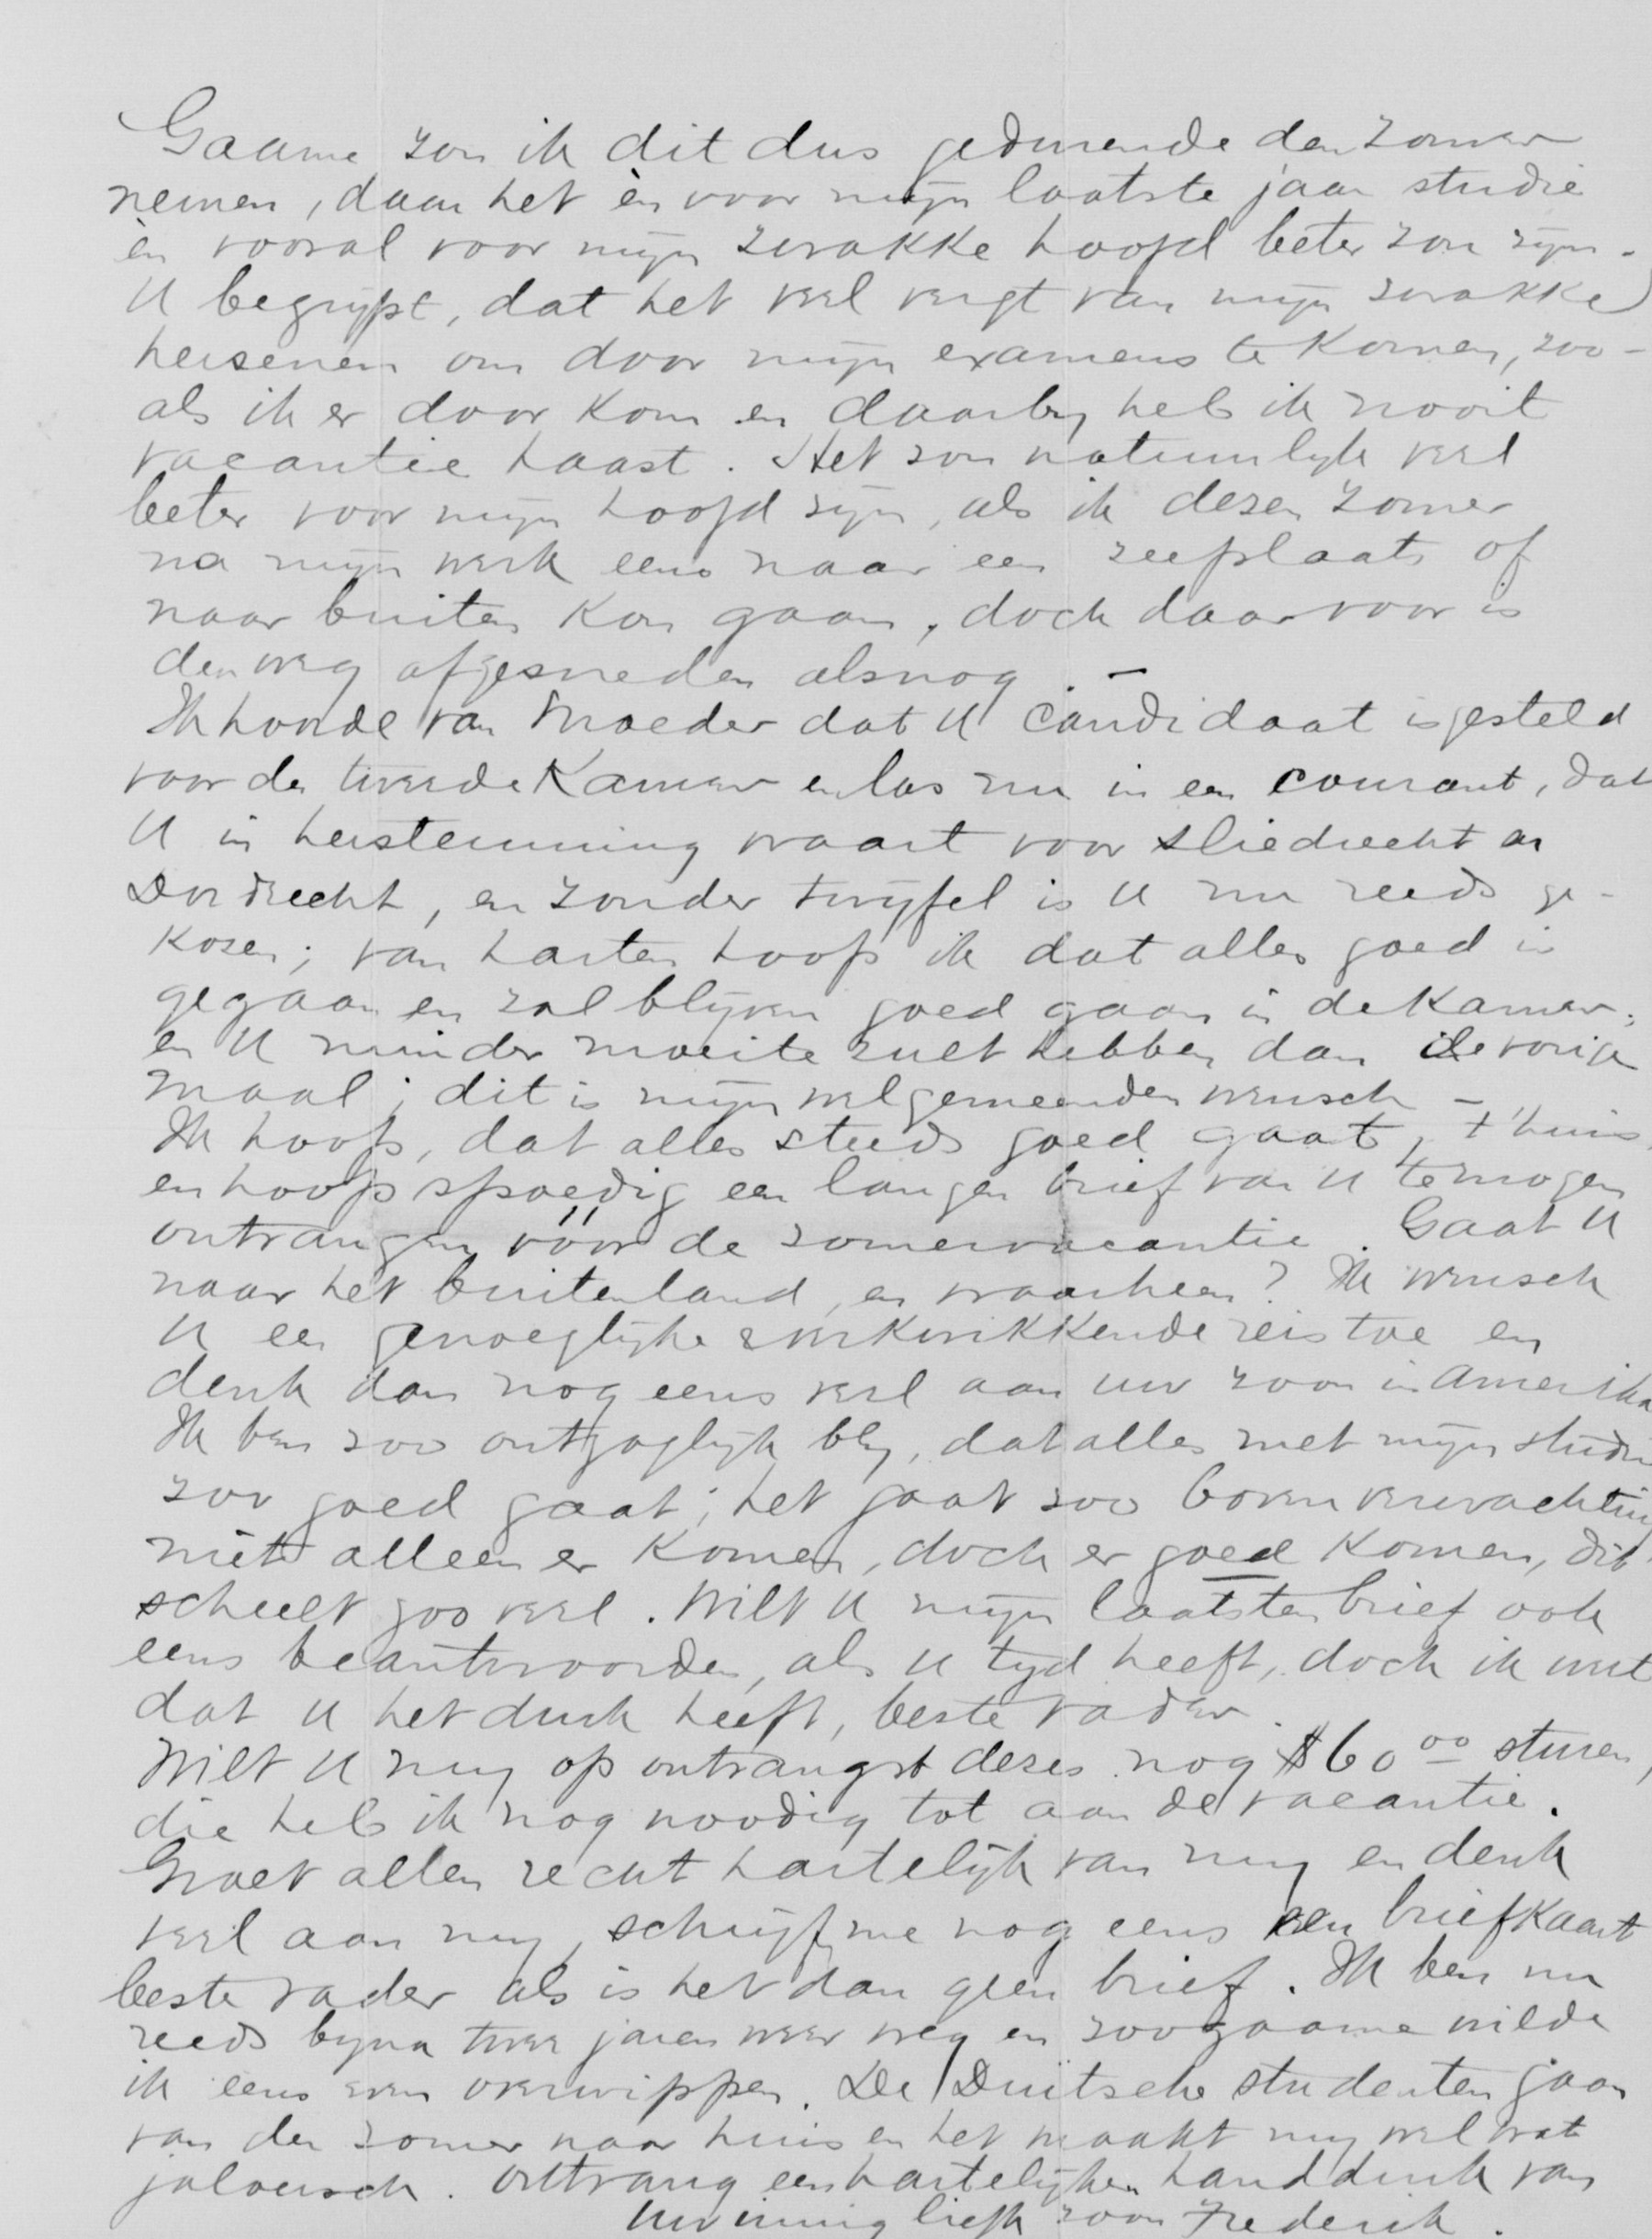 Gaarne zou ik dit dus gedurende den Zomer
nemen, daar het èn voor mijn laatste jaar studie
èn vooral voor mijn zwakke hoofd beter zou zijn.
U begrijpt, dat het veel vergt van mijn zwakke
hersenen om door mijn examens te komen, zoo-
als ik er door kom en daarby heb ik nooit
vacantie haast. Het zou natuurlyk veel
beter voor mijn hoofd zijn, als ik dezen Zomer
na mijn werk eens naar een zeeplaats of
naar buiten kon gaan, doch daarvoor is
den weg afgesneden alsnog. —
Ik hoorde van Moeder dat U candidaat is gesteld
voor de tweede Kamer en las nu in een courant, dat
U in herstemming waart voor Sliedrecht en
Dordrecht, en zonder twijfel is U nu reeds ge-
kozen; van harten hoop ik dat alles goed is
gegaan en zal blijven goed gaan in de Kamer;
en U minder moeite zult hebben dan de vorige
maal; dit is mijn welgemeenden wensch —
Ik hoop, dat alles steeds goed gaat, t'huis,
en hoop spoedig een langen brief van U te mogen
ontvangen vóór de zomervacantie. Gaat U
naar het buitenland, en waarheen? Ik wensch
U een genoeglijke & verkwikkende reis toe en
denk dan nog eens veel aan uw zoon in Amerika
Ik ben zoo ontzaglijk bly, dat alles met mijn studie
zoo goed gaat; het gaat zoo boven verwachting
niet alleen er komen, doch er goed komen, dit
scheelt zoo veel. Wilt U mijn laatsten brief ook
eens beantwoorden, als U tyd heeft, doch ik weet
dat U het druk heeft, beste Vader.
Wilt U my op ontvangst dezes nog $60 00 sturen,
die heb ik nog noodig tot aan de vacantie.
Groet allen recht hartelijk van my en denk
veel aan my, schrijf me nog eens een briefkaart
beste vader als is het dan geen brief. Ik ben nu
reeds byna twee jaren weer weg en zoo gaarne wilde
ik eens even overwippen. De Duitsche studenten gaan
van den zomer naar huis en het maakt my wel wat
jaloersch. Ontvang een hartelijken handdruk van
Uw innig liefh zoon Frederik.